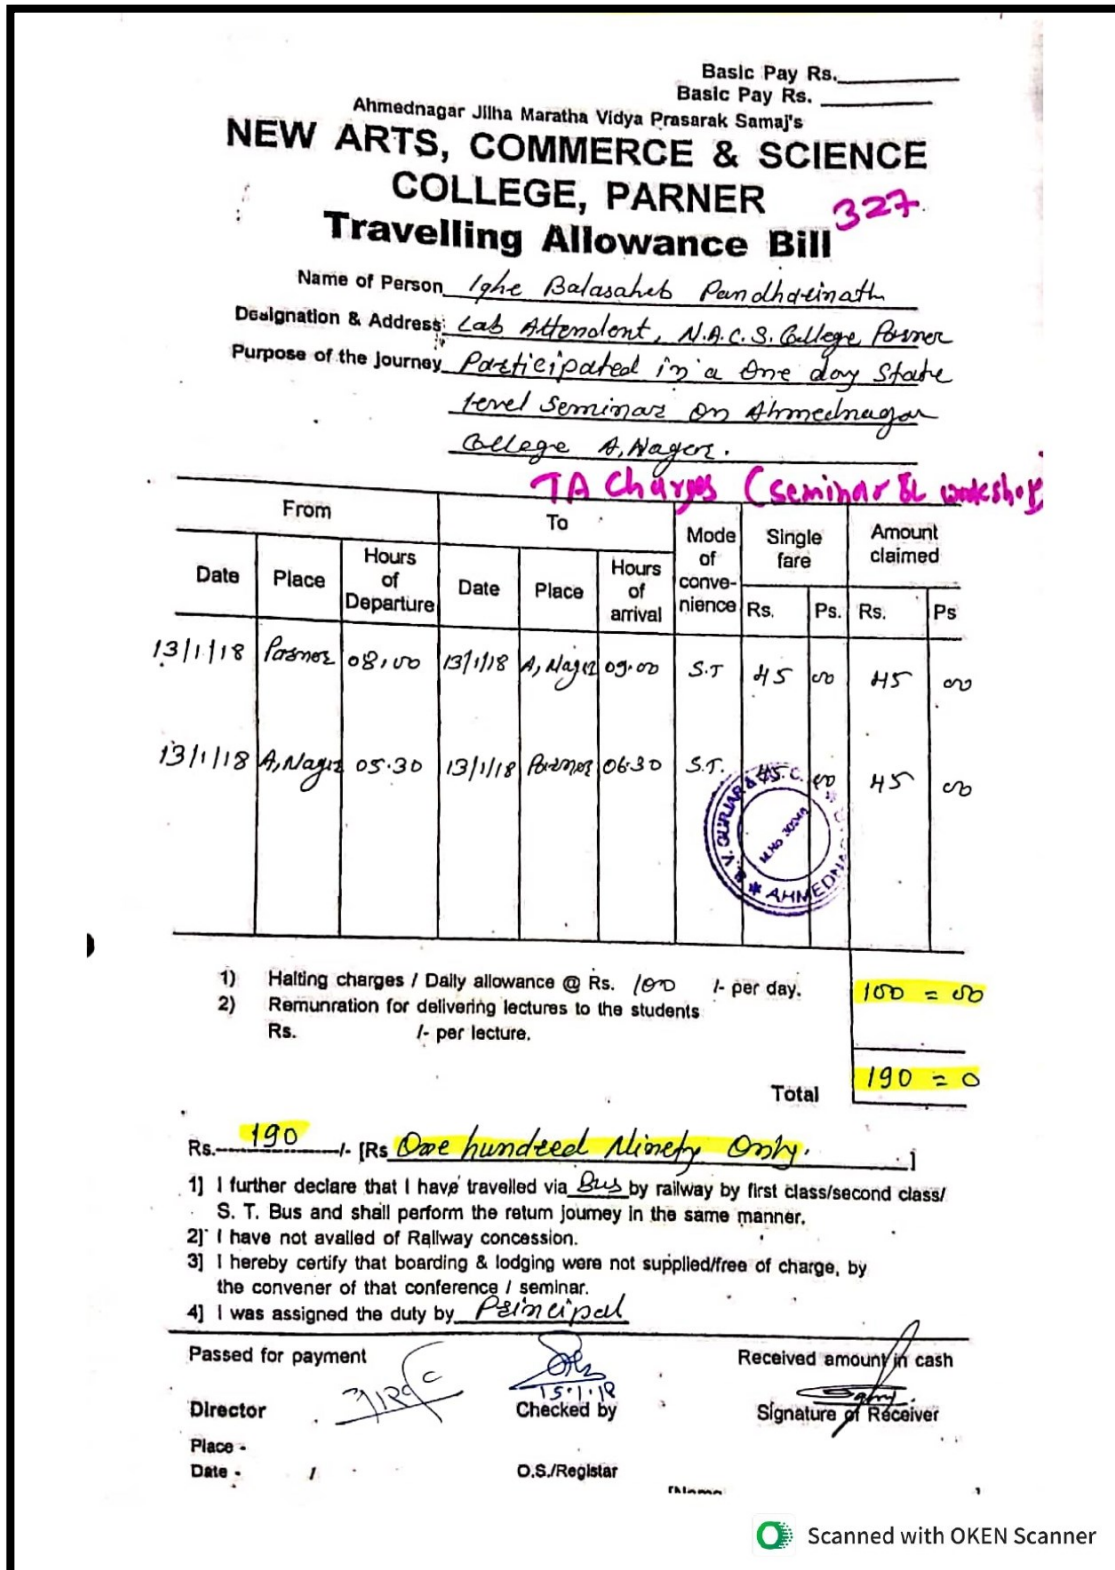 Basic Pay Rs.
Basic Pay Rs.
Ahmednagar Jilha Maratha Vidya Prasarak Samaj's
NEW ARTS, COMMERCE & SCIENCE
COLLEGE, PARNER
327
Travelling Allowance Bill
Name of Person Ighe Balasaheb Pandharinath
Designation & Address: Lab Attendent, N.A.C.S. College Parner
Purpose of the Journey Participated in a One day State
level Seminar on Ahmednagar
College A, Nager.
TA Charges (seminar & workshop)
From To Mode of conve-nience Single fare Amount claimed
Date Place Hours of Departure Date Place Hours of arrival Rs. Ps. Rs. Ps
13/1/18 Parner 08.00 13/1/18 A, Nager 09.00 S.T 45 00 45 00
13/1/18 A, Nager 05.30 13/1/18 Parner 06.30 S.T. 45 00 45 00
B. V. GURJAR & S. C. * AHMEDNAG
M.No
1) Halting charges / Daily allowance @ Rs. 100 /- per day. 100 = 00
2) Remunration for delivering lectures to the students
Rs. /- per lecture.
Total 190 = 0
Rs. 190 /- [Rs One hundred Ninety Only. ]
1] I further declare that I have travelled via Bus by railway by first class/second class/
S. T. Bus and shall perform the return journey in the same manner.
2] I have not availed of Railway concession.
3] I hereby certify that boarding & lodging were not supplied/free of charge, by
the convener of that conference / seminar.
4] I was assigned the duty by Principal
Passed for payment Received amount in cash
15.1.18
Director Checked by Signature of Receiver
Place -
Date - O.S./Registar
Scanned with OKEN Scanner